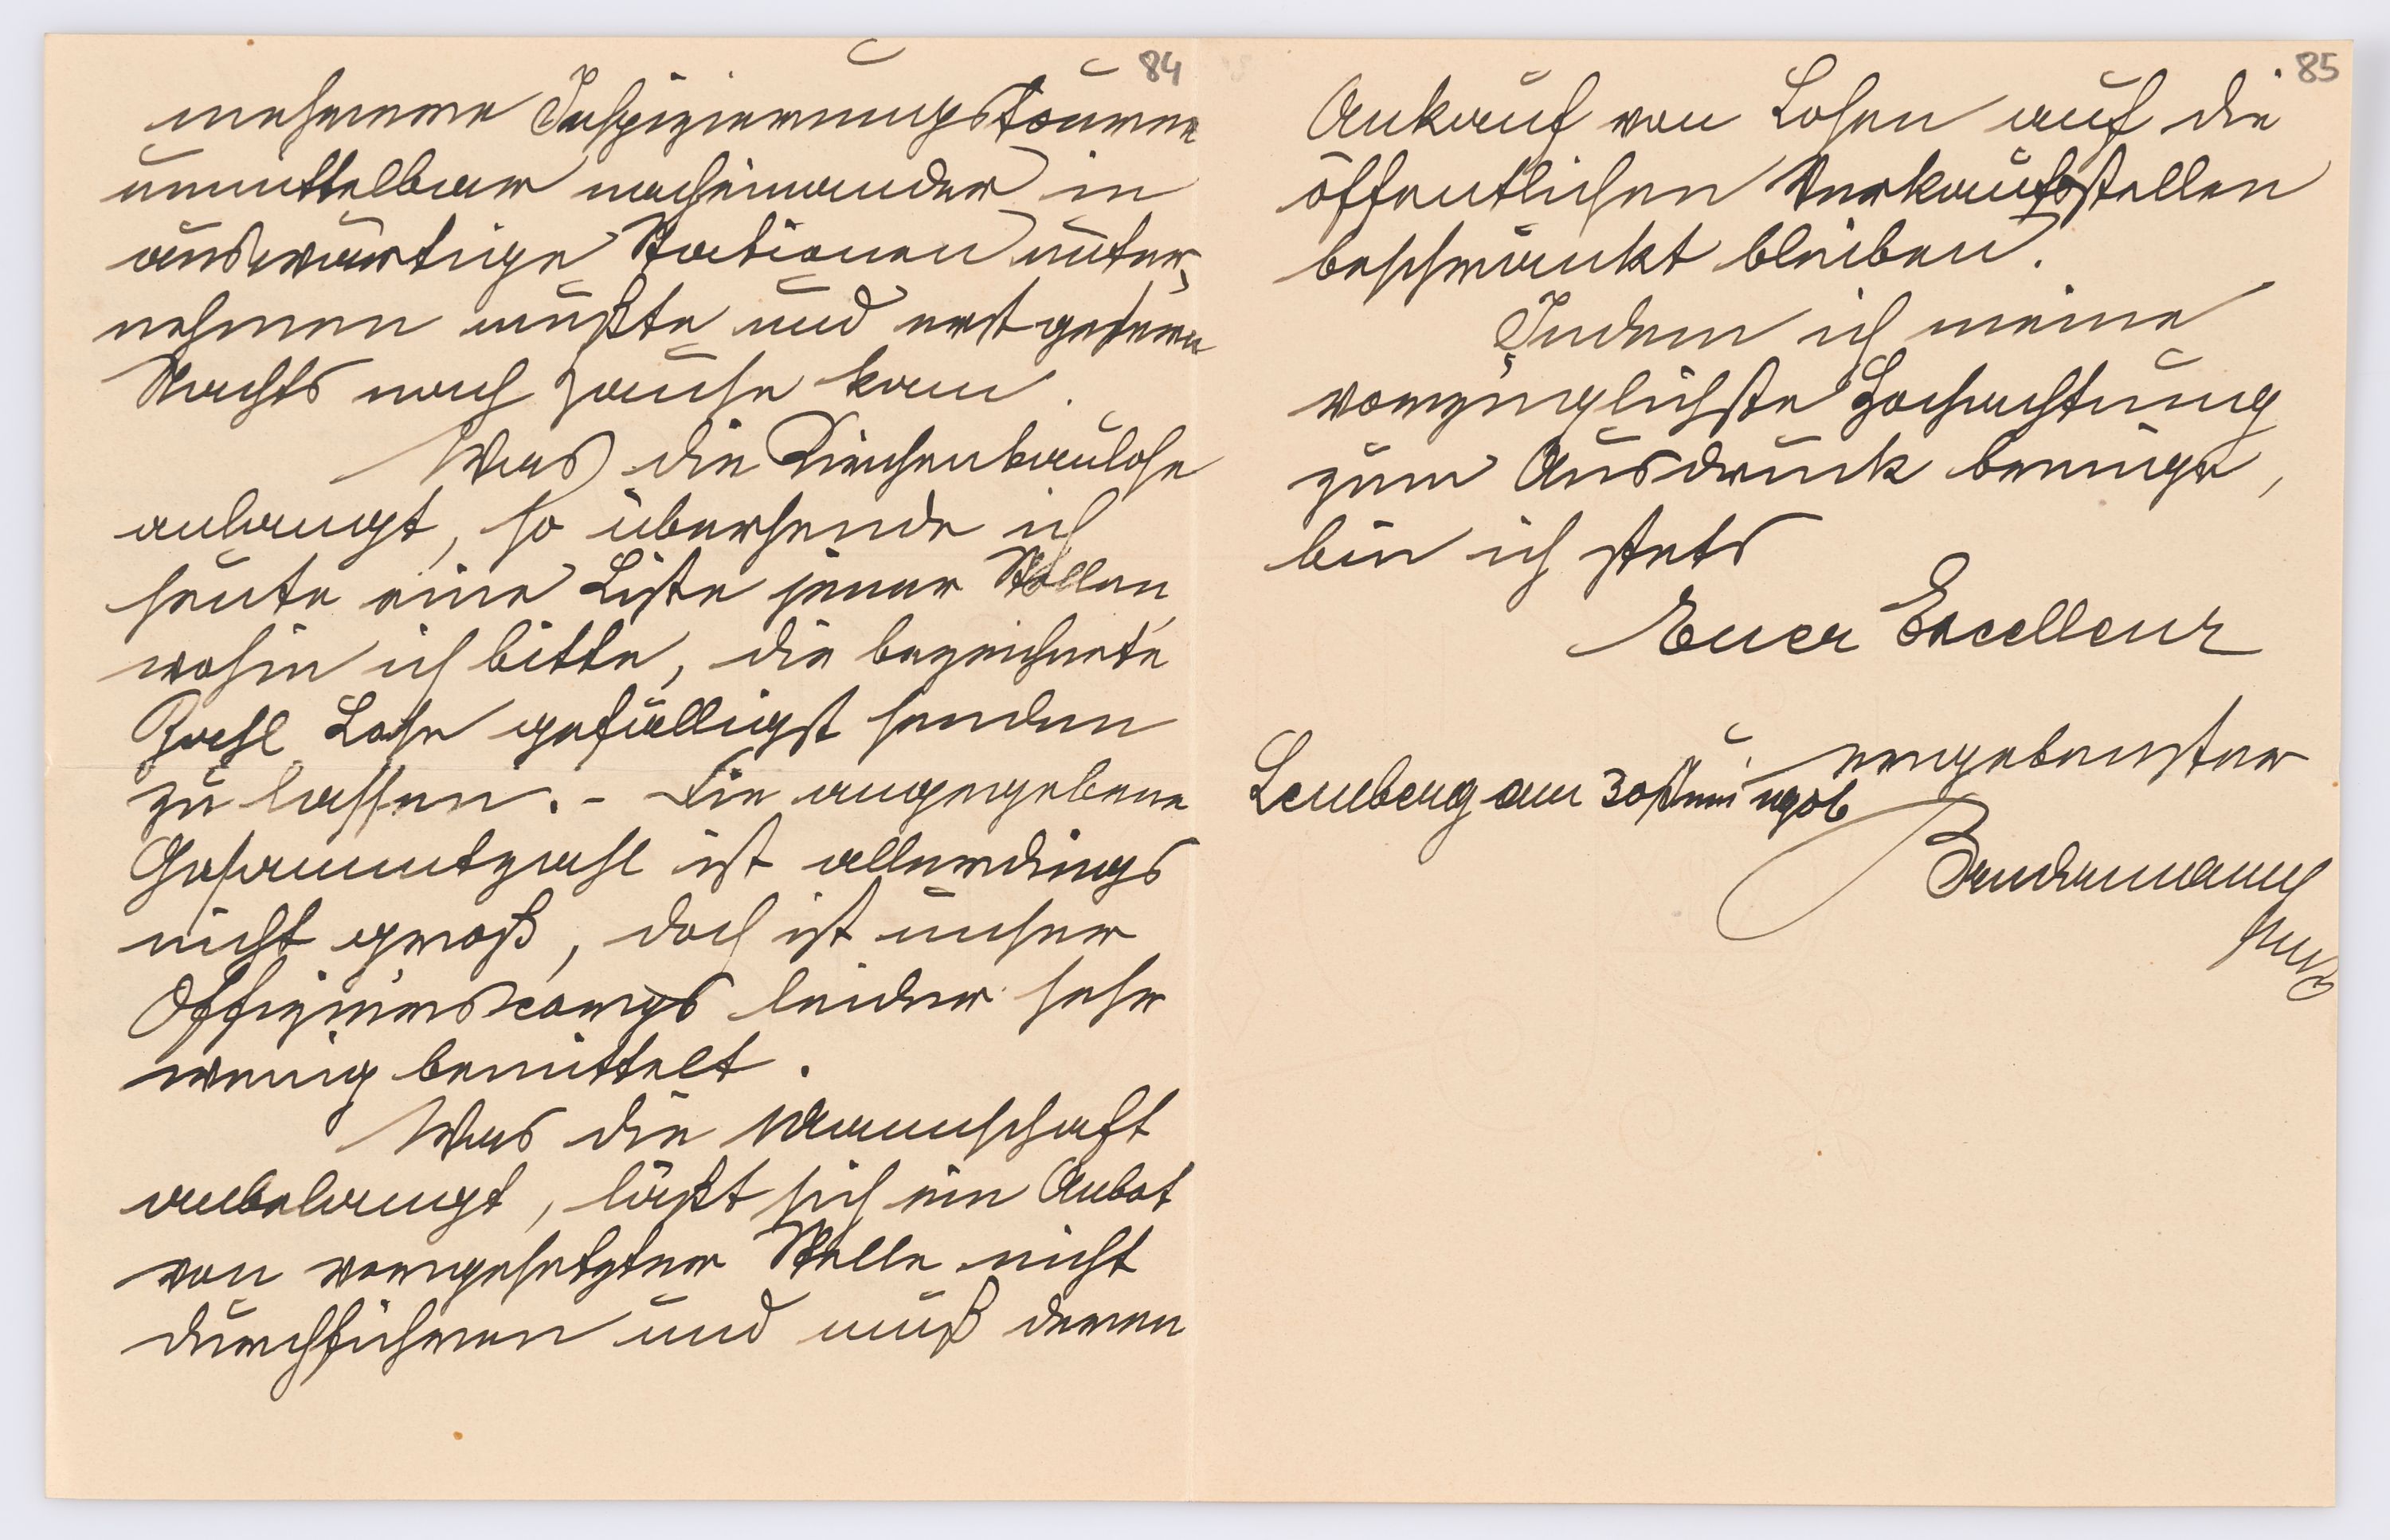 84
mehrere Inspizierungstouren
unmittelbar nacheinander in
auswärtige Stationen unter-
nehmen mußte und erst gestern
Nachts nach Hause kam.
Was die Kirchenbaulose
anlangt, so übersende ich
heute eine Liste jener Stellen,
wohin ich bitte, die bezeichnete
Zahl Lose gefälligst senden
zu lassen. - Die angegebene
Gesammtzahl ist allerdings
nicht groß, doch ist unser
Offizierscorps leider sehr
wenig bemittelt.
Was die Mannschaft
anbelangt, läßt sich ein Anbot
von vorgesetzter Stelle nicht
durchführen und muß deren
85
Ankauf von Losen auf die
öffentlichen Verkaufsstellen
beschränkt bleiben.
Indem ich meine
vorzüglichste Hochachtung
zum Ausdruck bringe,
bin ich stets
Euer Excellenz
ergebenster
Lemberg am 30/Juni 1906
Brudermann